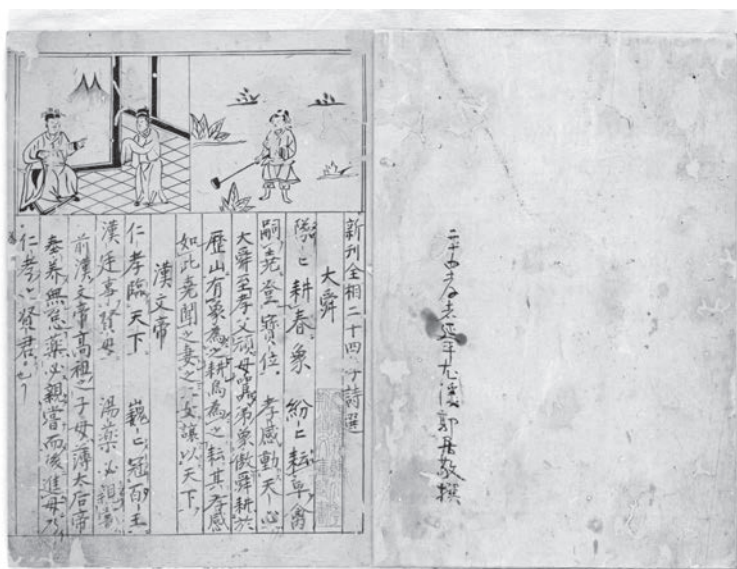 二十四孝者延平尤溪郭居敬撰
新刊全相二十四孝詩選
大舜
隊〻耕春象 紛〻耘草禽
嗣堯登寶位 孝感動天心
大舜至孝父頑母嚚弟象傲舜耕於
歷山有象為之耕鳥為之耘其孝感
如此堯聞之妻之二女讓以天下
漢文帝
仁孝臨天下 巍〻冠百王
漢廷事賢母 湯藥必親嘗
前漢文帝高祖之子母薄太后帝
奉養無怠藥必親嘗而後進母乃
仁孝之賢君也